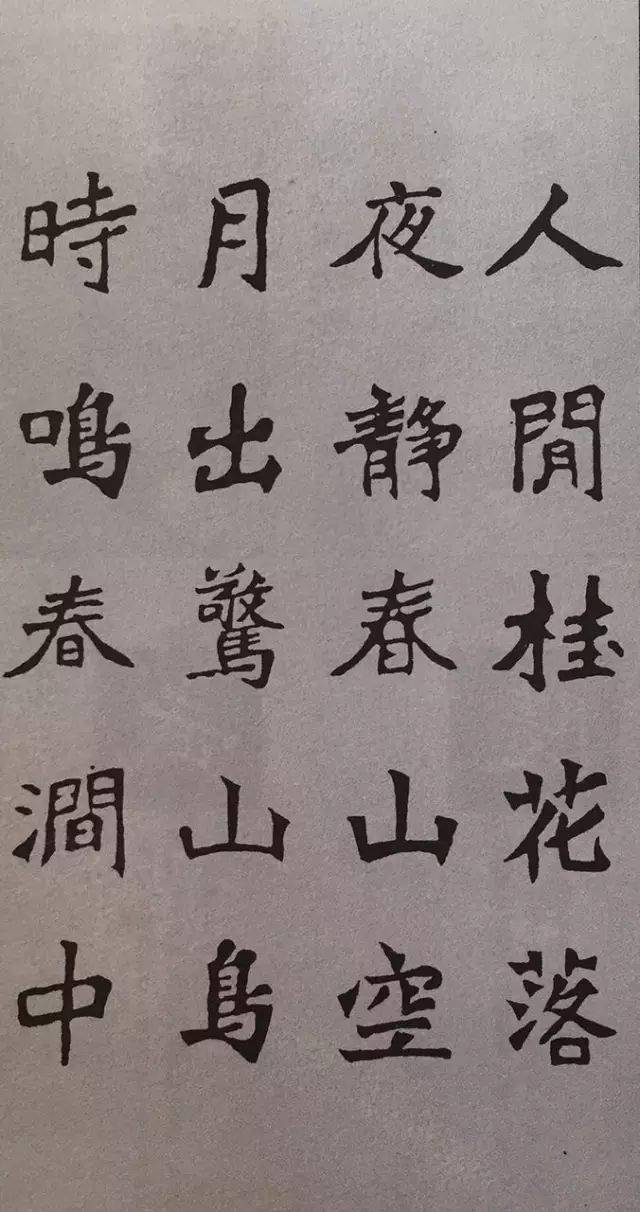 人閒桂花落
夜靜春山空
月出驚山鳥
時鳴春澗中